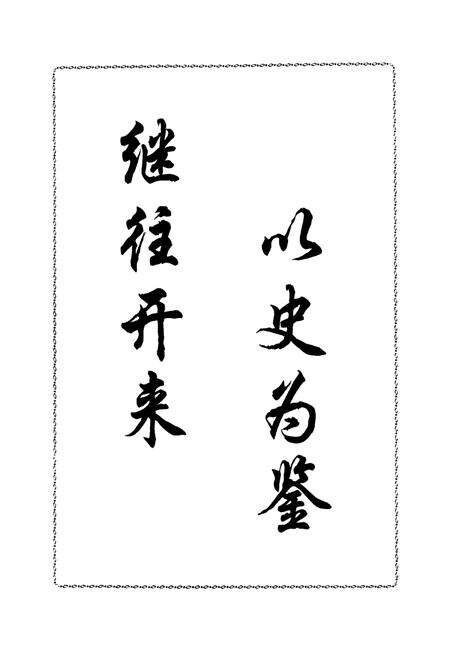 以史为鉴
继往开来